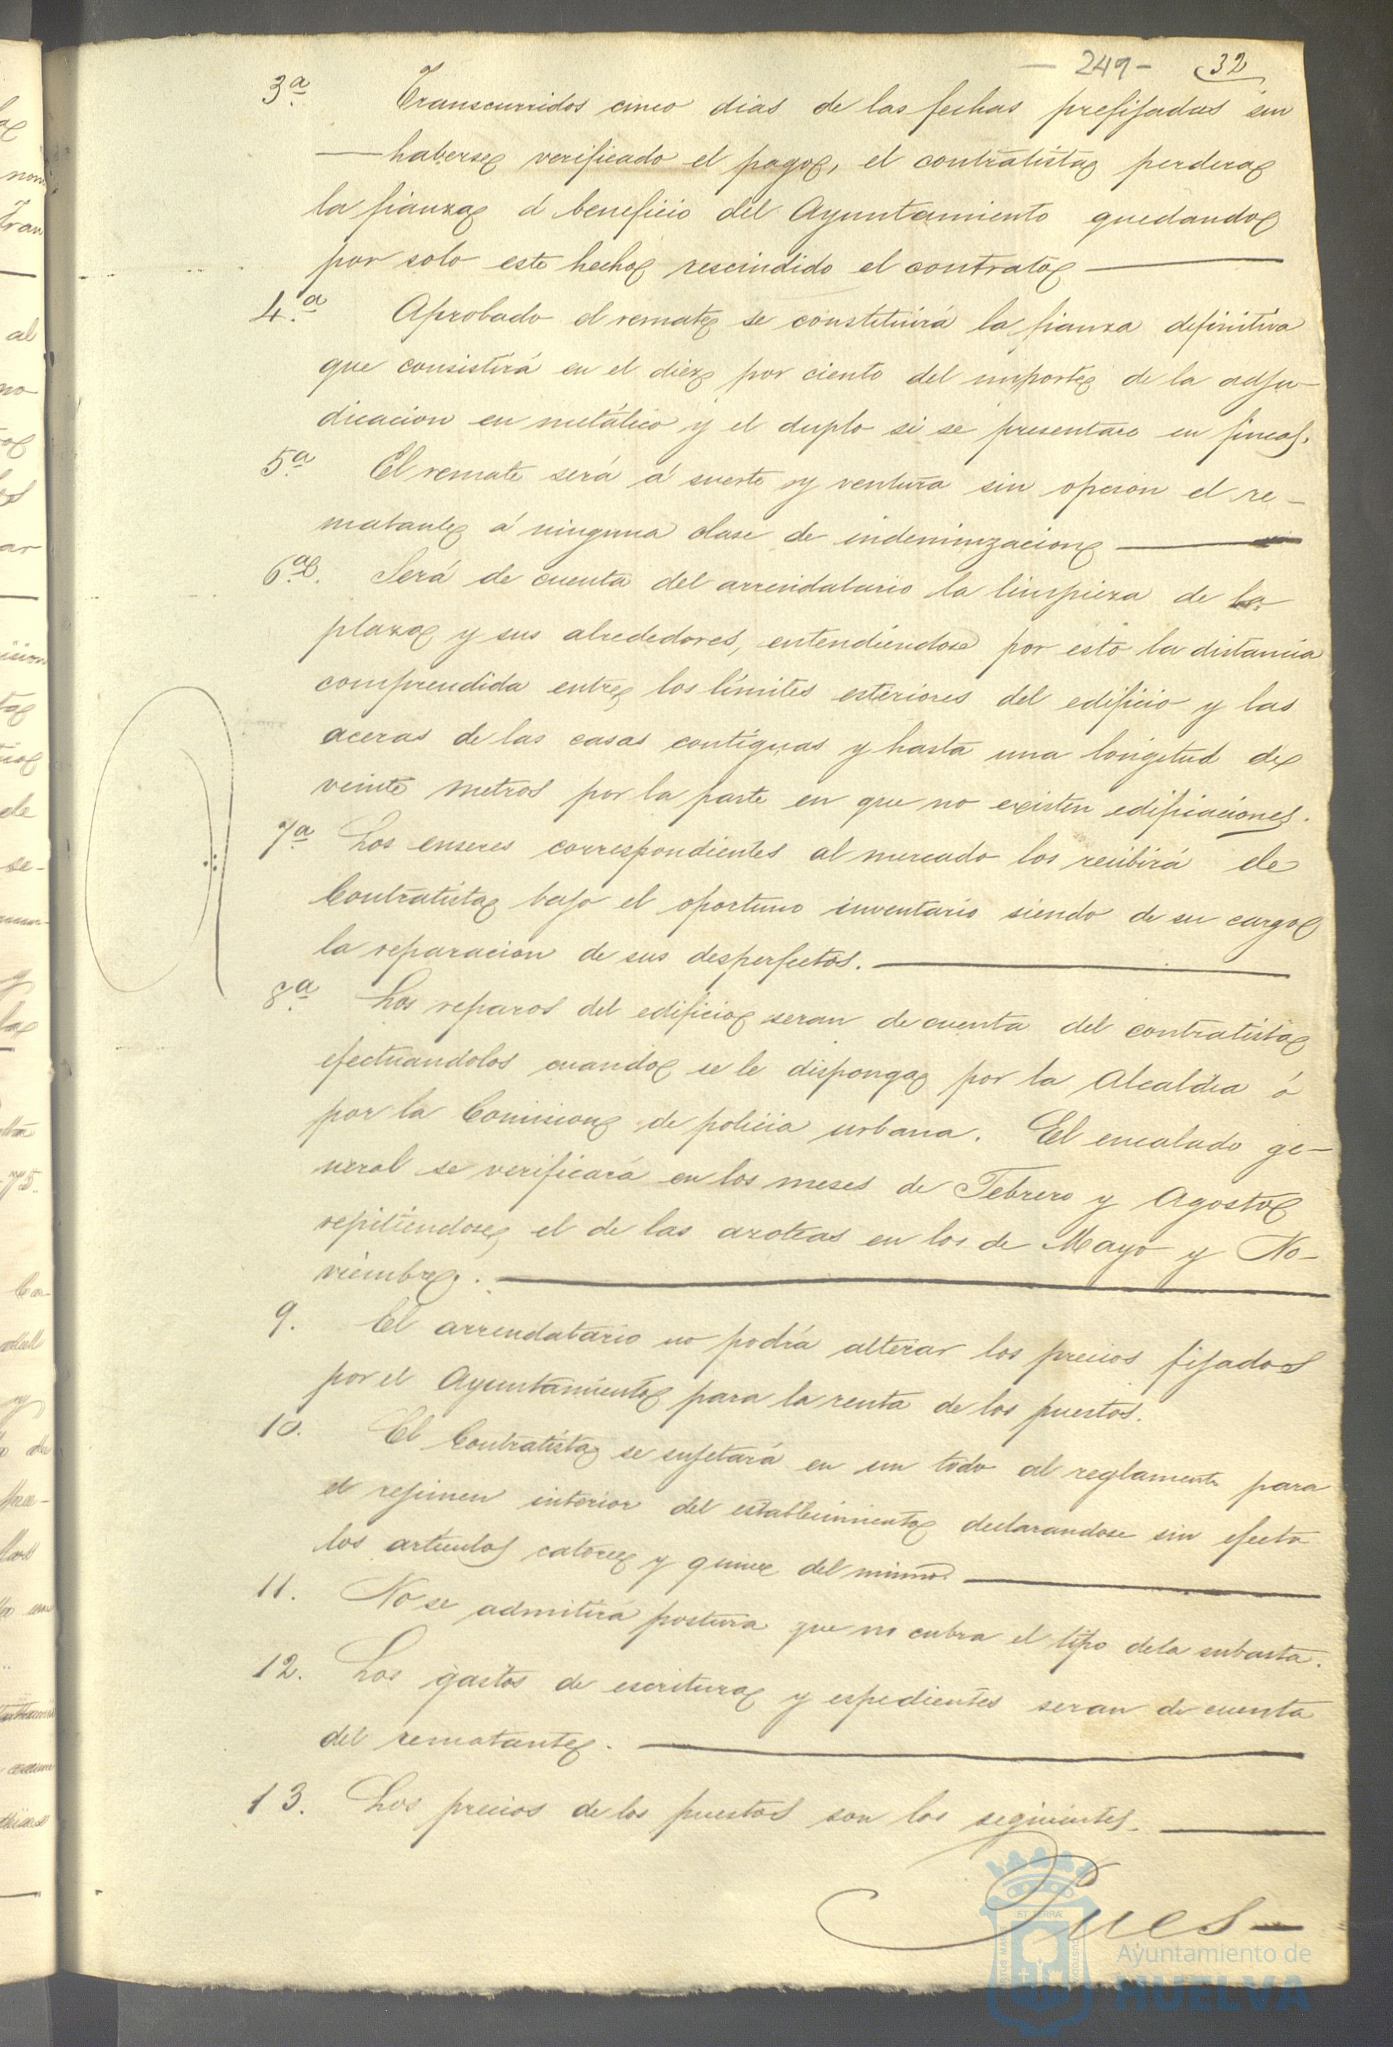 - 249 - 32
3ª Transcurridos cinco dias de las fechas prefijadas sin
haberse verificado el pago, el contratista perdera
la fianza á beneficio del Ayuntamiento quedando
por solo este hecho rescindido el contrato
4.ª Aprobado el remate se constituirá la fianza definitiva
que consistirá en el diez por ciento del importe de la adju-
dicacion en metálico y el duplo si se presentare en fincas.
5ª El remate será á suerte y ventura sin opcion el re-
matante á ninguna clase de indeminizacion
6ª. Será de cuenta del arrendatario la limpieza de la
plaza y sus alrededores, entendiendose por esto la distancia
comprendida entre los límites esteriores del edificio y las
aceras de las casas contiguas y hasta una longetud de
veinte metros por la parte en que no existen edificaciones.
7ª Los enseres correspondientes al mercado los recibirá ele
Contratista bajo el oportuno inventario siendo de su cargo
la reparacion de sus desperfectos.
8ª Los reparos del edificio seran de cuenta del contratista
efectuandolos cuando se le disponga por la Alcaldia ó
por la Comision de policia urbana. El encalado ge-
neral se verificará en los meses de Febrero y Agosto
repitiendose el de las azoteas en los de Mayo y No-
viembre.
9. El arrendatario no podrá alterar los precios fijados
por el Ayuntamiento para la renta de los puestos.
10. El Contratista se sujetará en un todo al reglamento para
el rejimen interior del establecimiento declarandose sin efecto
los articulos catorce y quince del mismo.
11. No se admitirá postura que no cubra el tipo dela subasta.
12. Los gastos de escritura y espedientes seran de cuenta
del rematante.
13. Los precios de los puestos son los seguientes.
Pues-
Ayuntamiento de
HUELVA